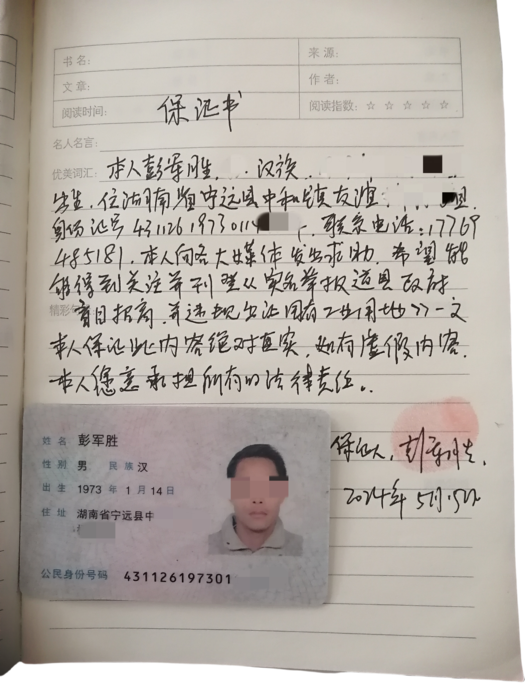 书名： 来源：
文章： 作者：
阅读时间： 阅读指数：☆ ☆ ☆ ☆ ☆
保证书
名人名言：
优美词汇：本人彭军胜 汉族
出生，住湖南省宁远县中和镇友谊 组
身份证号 43112619730114 联系电话：17769
485181. 本人向各大媒体发出求助，希望能
够得到关注并刊登《实名举报道县政府
盲目招商，并违规出让国有工业用地》一文
本人保证此内容绝对真实，如有虚假内容，
本人愿意承担所有的法律责任。
保证人：彭军胜
2024年5月15日
姓名 彭军胜
性别 男 民族 汉
出生 1973 年 1 月 14 日
住址 湖南省宁远县中
公民身份号码 431126197301